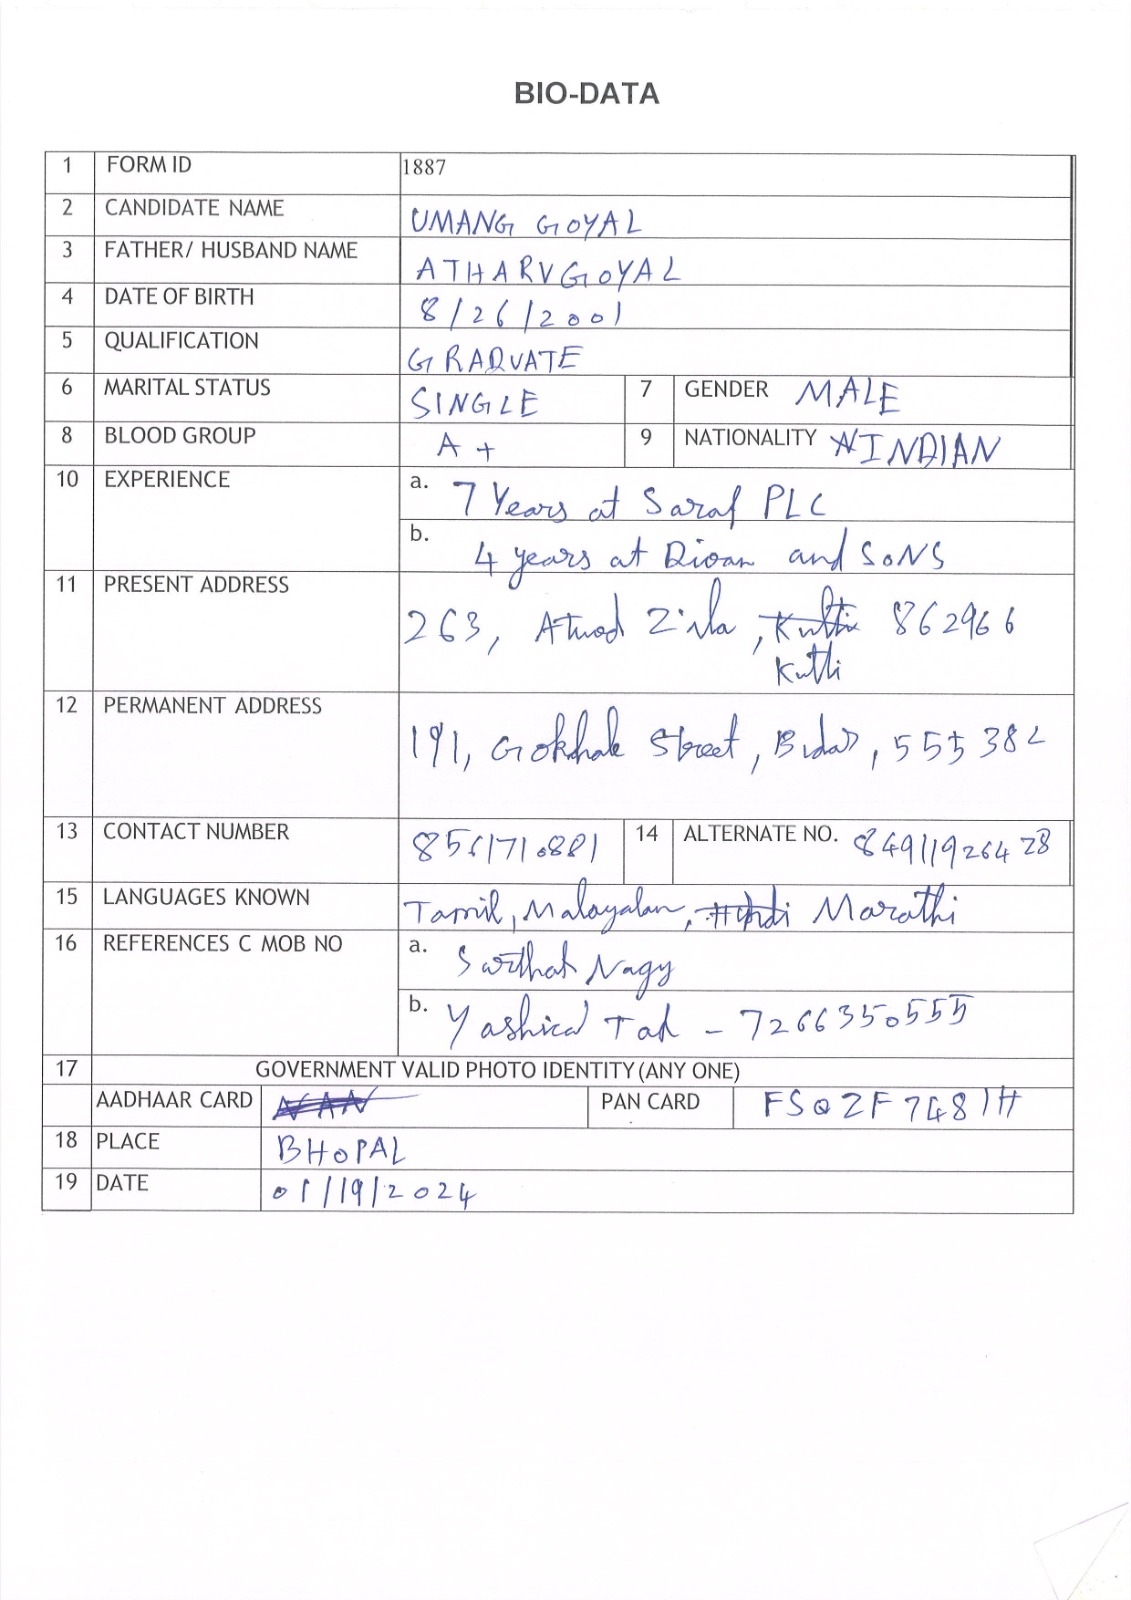 BIO-DATA
1 FORM ID 1887
2 CANDIDATE NAME UMANG GOYAL
3 FATHER/ HUSBAND NAME ATHARV GOYAL
4 DATE OF BIRTH 8/26/2001
5 QUALIFICATION GRADUATE
6 MARITAL STATUS SINGLE 7 GENDER MALE
8 BLOOD GROUP A+ 9 NATIONALITY INDIAN
10 EXPERIENCE a. 7 Years at Saraf PLC
b. 4 years at and SONS
11 PRESENT ADDRESS
263, Zila, 862966
Kulti
12 PERMANENT ADDRESS
191, Gokhale Street, Bidar, 555382
13 CONTACT NUMBER 14 ALTERNATE NO.
15 LANGUAGES KNOWN Tamil, Malayalam, Hindi Marathi
16 REFERENCES C MOB NO a. Sarthak Nagy
b. Yashica Tak - 7266350555
17 GOVERNMENT VALID PHOTO IDENTITY (ANY ONE)
AADHAAR CARD NAN PAN CARD FSQZF7481H
18 PLACE BHOPAL
19 DATE 01/19/2024